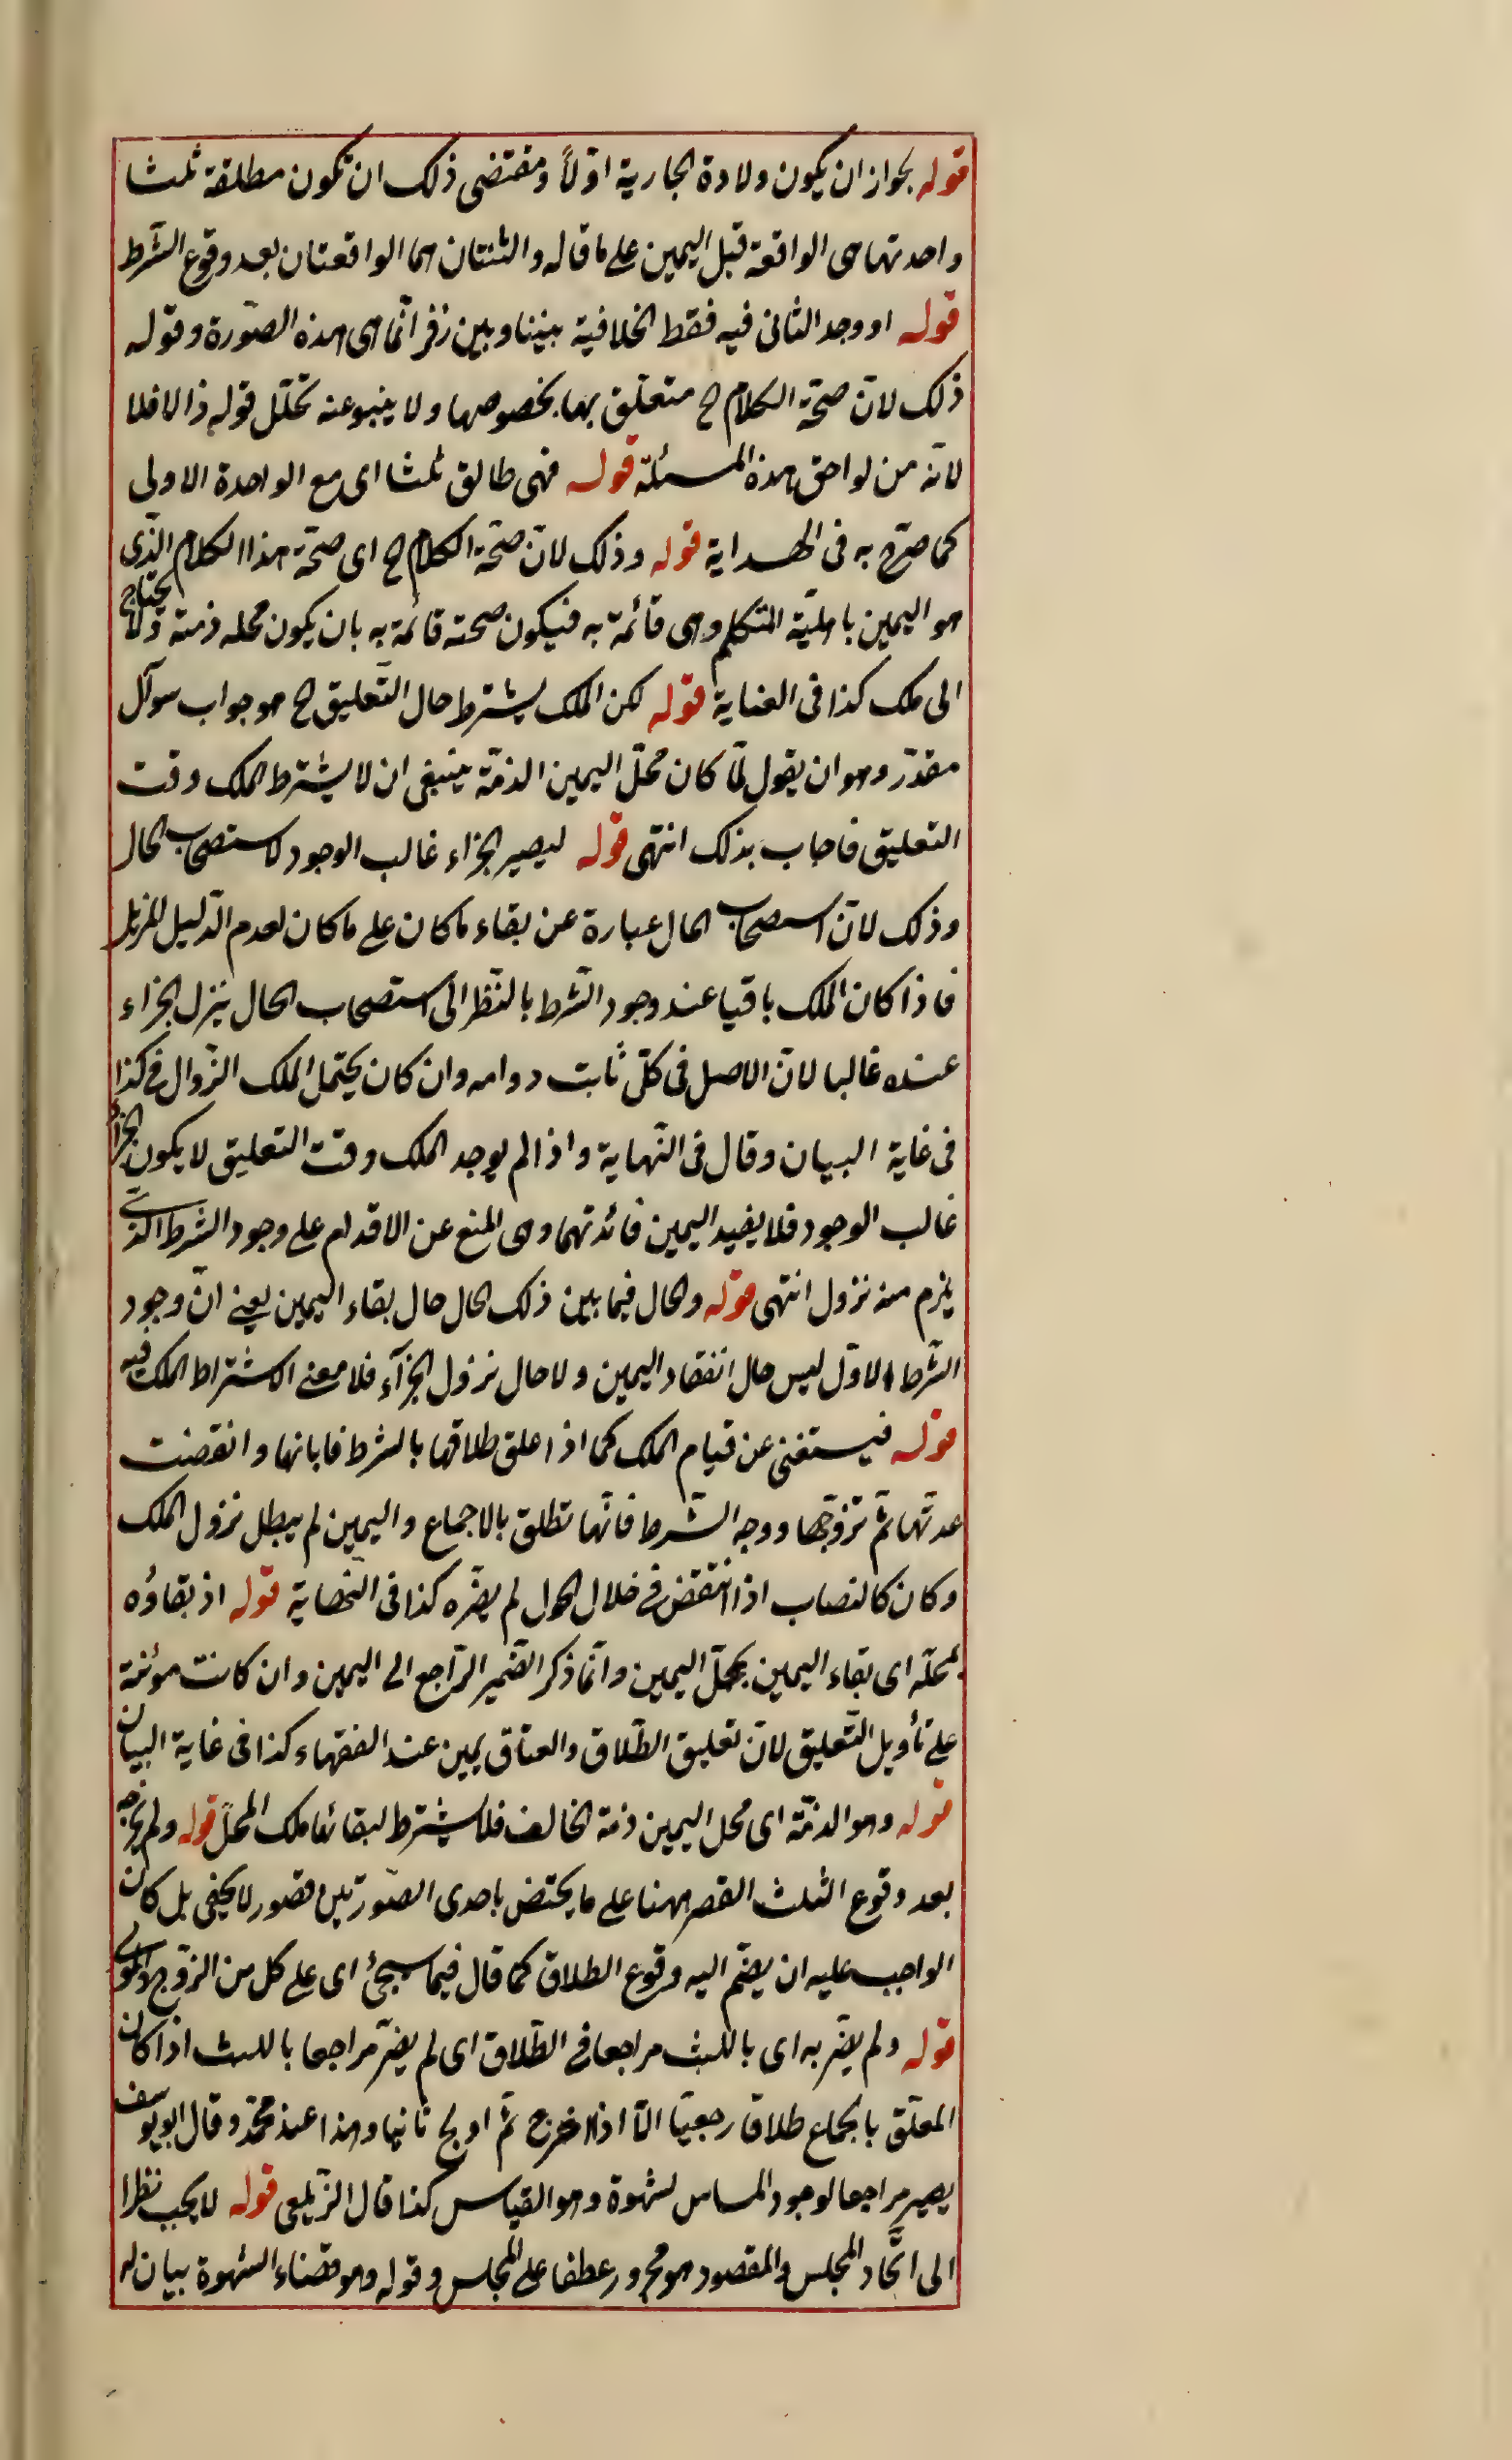 قوله بجواز ان يكون ولادة الجارية اوّلاً ومقتضى ذلك ان تكون مطلقة ثلثا
واحدتها هى الواقعة قبل اليمين على ما قاله والثنتان هما الواقعتان بعد وقوع الشّرط
قوله او وجد الثانى فيه فقط الخلافية بيننا وبين زفر انّما هى هذه الصّورة وقوله
ذلك لانّ صحّة الكلام ح متعلّق بها بخصوصها ولا ينبو عنه تخلّل قوله ذا لا فلا
لانّه من لواحق هذه المسئلة قوله فهى طالق ثلثا اى مع الواحدة الاولى
كما صرّح به فى الهداية قوله وذلك لانّ صحّة الكلام ح اى صحّة هذا الكلام الذّى
هو اليمين باهليّة المتكلم وهى قائمة به فيكون صحته قائمة به بان يكون محله ذمته ولا يحتاج
الى ملك كذا فى العناية قوله لكن الملك يشترط حال التّعليق ح هو جواب سوآل
مقدّر وهو ان يقول لمّا كان محلّ اليمين الذمّة ينبغى ان لا يشترط الملك وقت
التعليق فاجاب بذلك انتهى قوله ليصير الجزاء غالب الوجود لاستصحاب الحال
وذلك لانّ استصحاب الحال عبارة عن بقاء ما كان على ما كان لعدم الدّليل المزيل
فاذا كان الملك باقيا عند وجود الشّرط بالنّظر الى استصحاب الحال ينزل الجزاء
عنده غالبا لانّ الاصل فى كلّ ثابت دوامه وان كان يحتمل الملك الزّوال فى كذا
فى غاية البيان وقال فى النّهاية واذا لم يوجد الملك وقت التعليق لا يكون الجزاء
غالب الوجود فلا يفيد اليمين فائدتهما وهى المنع عن الاقدام على وجود الشرط الذّى
يلزم منه نزول انتهى قوله والحال فيما بين ذلك الحال حال بقاء اليمين يعنى انّ وجود
الشّرط الاوّل ليس حال انعقاد اليمين ولا حال نزول الجزآء فلا معنى لاشتراط الملك فيه
قوله فيستغنى عن قيام الملك كما اذا علق طلاقها بالشرط فابانها وانقضت
عدتّها ثمّ تزوّجها ووجد الشّرط فانّها تطلق بالاجماع واليمين لم يبطل بزول الملك
وكان كالنصاب اذا انتقض فى خلال الحول لم يضرّه كذا فى النّهاية قوله اذ بقاؤه
بمحلّه اى بقاء اليمين بمحلّ اليمين وانّما ذكر الضّمير الرّاجع الى اليمين وان كانت مؤنثة
على تأويل التّعليق لانّ تعليق الطّلاق والعتاق يمين عند الفقهاء كذا فى غاية البيان
قوله وهو الذمّة اى محل اليمين ذمة الحالف فلا يشترط لبقائها ملك المحلّ قوله ولم
بعد وقوع الثلث القصر ههنا على ما يختصّ باحدى الصّورتين قصور لا يخفى بل كان
الواجب عليه ان يضمّ اليه وقوع الطلاق كما قال فيما سيجئ اى على كل من الزّوج والمولى
قوله ولم يضرّ به اى باللبث مراجعا فى الطّلاق اى لم يضرّ مراجعا باللبث اذا كان
المعلّق بالجماع طلاقا رجعيّا الّا اذا اخرج ثمّ اولج ثانيا وهذا عند محمّد وقال ابو يوسف
يصير مراجعا لوجود المساس لشهوة وهو القياس كذا قال الزّيلعى قوله لا يجب نظرا
الى اتّحاد المجلس والمقصود هو مجرور عطفا على المجلس وقوله وهو قضاء الشهوة بيان له